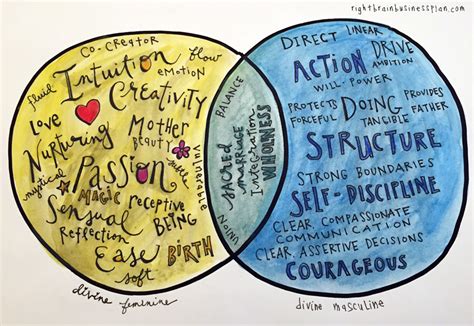 rightbrainbusinessplan.com
CO-CREATOR
flow
fluid
Intuition
emotion
Creativity
LOVE
Nurturing
Mother
BEAUTY
mystical
Passion
subtle
vulnerable
MAGIC
receptive
Sensual
BEING
Reflection
Ease
BIRTH
soft
divine feminine
BALANCE
SACRED
marriage
Integration
WHOLENESS
UNION
DIRECT LINEAR
DRIVE
ACTION
AMBITION
WILL-POWER
PROTECTS
DOING
PROVIDES
FORCEFUL
TANGIBLE
FATHER
STRUCTURE
STRONG BOUNDARIES
SELF-DISCIPLINE
CLEAR, COMPASSIONATE
COMMUNICATION
CLEAR, ASSERTIVE DECISIONS
COURAGEOUS
divine masculine